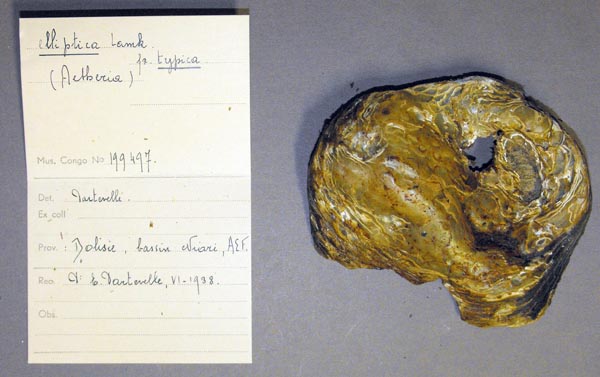 elliptica Lamk.
fa typica
(Aetheria)
Mus. Congo No 199497.
Det. Dartevelle.
Ex coll
Prov. : Dolisie, bassin Niari, A.E.F.
Rec. Dr E. Dartevelle, VI-1938.
Obs.